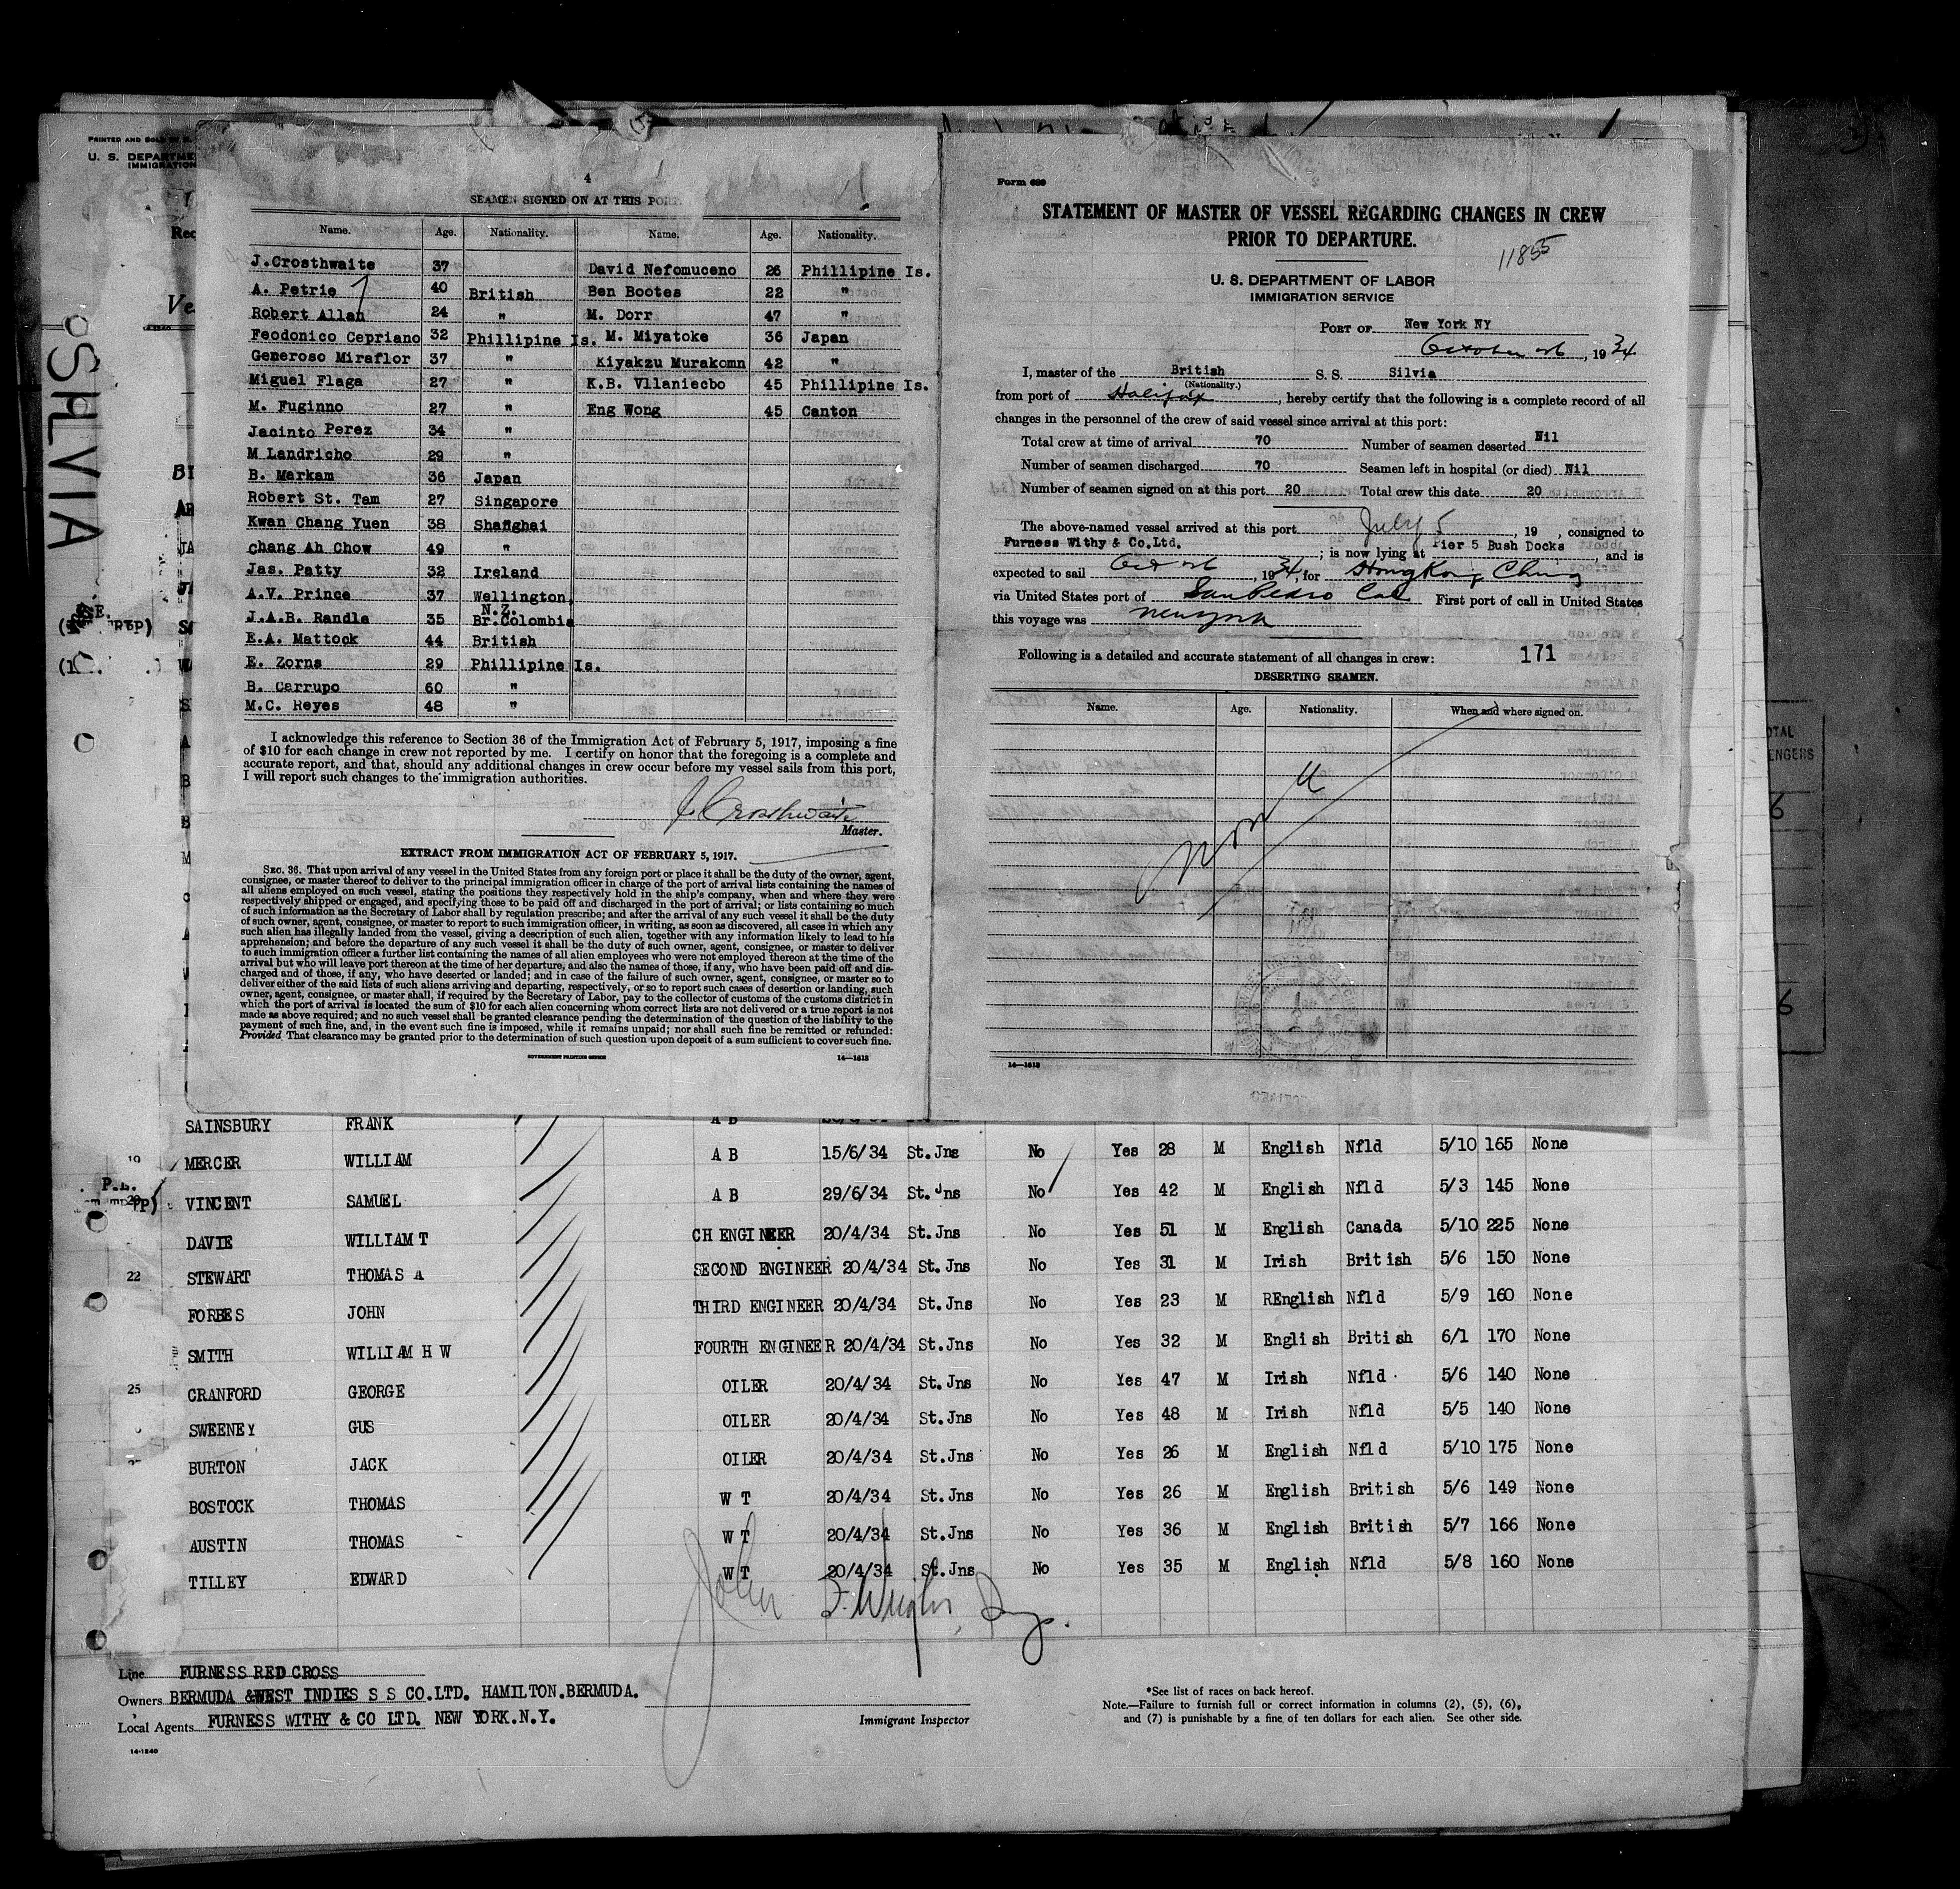 PRINTED AND SOLD
U. S. DEPARTME
IMMIGRATION
SILVIA
4
SEAMEN SIGNED ON AT THIS PORT.
Name. Age. Nationality. Name. Age. Nationality.
J.Crosthwaite 37 David Nefomuceno 26 Phillipine Is.
A. Petrie 40 British Ben Bootes 22 "
Robert Allan 24 " M. Dorr 47 "
Feodonico Cepriano 32 Phillipine Is. M. Miyatoke 36 Japan
Generoso Miraflor 37 " Kiyakzu Murakomn 42 "
Miguel Flaga 27 " K.B. Vllaniecbo 45 Phillipine Is.
M. Fuginno 27 " Eng Wong 45 Canton
Jacinto Perez 34 "
M Landricho 29 "
B. Markam 36 Japan
Robert St. Tam 27 Singapore
Kwan Chang Yuen 38 Shanghai
Chang Ah Chow 49 "
Jas. Patty 32 Ireland
A.V. Prince 37 Wellington, N.Z.
J.A.B. Randle 35 Br.Colombia
E.A. Mattock 44 British
E. Zorns 29 Phillipine Is.
B. Cerrupo 60 "
M.C. Reyes 48 "
I acknowledge this reference to Section 36 of the Immigration Act of February 5, 1917, imposing a fine
of $10 for each change in crew not reported by me. I certify on honor that the foregoing is a complete and
accurate report, and that, should any additional changes in crew occur before my vessel sails from this port,
I will report such changes to the immigration authorities.
J Crosthwaite
Master.
EXTRACT FROM IMMIGRATION ACT OF FEBRUARY 5, 1917.
SEC. 36. That upon arrival of any vessel in the United States from any foreign port or place it shall be the duty of the owner, agent,
consignee, or master thereof to deliver to the principal immigration officer in charge of the port of arrival lists containing the names of
all aliens employed on such vessel, stating the positions they respectively hold in the ship's company, when and where they were
respectively shipped or engaged, and specifying those to be paid off and discharged in the port of arrival; or lists containing so much
of such information as the Secretary of Labor shall by regulation prescribe; and after the arrival of any such vessel it shall be the duty
of such owner, agent, consignee, or master to report to such immigration officer, in writing, as soon as discovered, all cases in which any
such alien has illegally landed from the vessel, giving a description of such alien, together with any information likely to lead to his
apprehension; and before the departure of any such vessel it shall be the duty of such owner, agent, consignee, or master to deliver
to such immigration officer a further list containing the names of all alien employees who were not employed thereon at the time of the
arrival but who will leave port thereon at the time of her departure, and also the names of those, if any, who have been paid off and dis-
charged and of those, if any, who have deserted or landed; and in case of the failure of such owner, agent, consignee, or master so to
deliver either of the said lists of such aliens arriving and departing, respectively, or so to report such cases of desertion or landing, such
owner, agent, consignee, or master shall, if required by the Secretary of Labor, pay to the collector of customs of the customs district in
which the port of arrival is located the sum of $10 for each alien concerning whom correct lists are not delivered or a true report is not
made as above required; and no such vessel shall be granted clearance pending the determination of the question of the liability to the
payment of such fine, and, in the event such fine is imposed, while it remains unpaid; nor shall such fine be remitted or refunded:
Provided That clearance may be granted prior to the determination of such question upon deposit of a sum sufficient to cover such fine.
GOVERNMENT PRINTING OFFICE 14—1613
Form 689
STATEMENT OF MASTER OF VESSEL REGARDING CHANGES IN CREW
PRIOR TO DEPARTURE.
11855
U. S. DEPARTMENT OF LABOR
IMMIGRATION SERVICE
PORT OF New York NY
October 26, 1934
I, master of the British S. S. Silvia
(Nationality.)
from port of Halifax, hereby certify that the following is a complete record of all
changes in the personnel of the crew of said vessel since arrival at this port:
Total crew at time of arrival 70 Number of seamen deserted Nil
Number of seamen discharged 70 Seamen left in hospital (or died) Nil
Number of seamen signed on at this port 20 Total crew this date 20
The above-named vessel arrived at this port July 5, 19 , consigned to
Furness Withy & Co.Ltd. ; is now lying at Pier 5 Bush Docks, and is
expected to sail Oct 26, 1934, for Hong Kong China
via United States port of San Pedro Cal First port of call in United States
this voyage was New York
Following is a detailed and accurate statement of all changes in crew: 171
DESERTING SEAMEN.
Name. Age. Nationality. When and where signed on.
14—1613
SAINSBURY FRANK A B
19 MERCER WILLIAM A B 15/6/34 St.Jns No Yes 28 M English Nfld 5/10 165 None
VINCENT SAMUEL A B 29/6/34 St.Jns No Yes 42 M English Nfld 5/3 145 None
DAVIE WILLIAM T CH ENGINEER 20/4/34 St.Jns No Yes 51 M English Canada 5/10 225 None
22 STEWART THOMAS A SECOND ENGINEER 20/4/34 St.Jns No Yes 31 M Irish British 5/6 150 None
FORBES JOHN THIRD ENGINEER 20/4/34 St.Jns No Yes 23 M REnglish Nfld 5/9 160 None
SMITH WILLIAM H W FOURTH ENGINEER 20/4/34 St.Jns No Yes 32 M English British 6/1 170 None
25 CRANFORD GEORGE OILER 20/4/34 St.Jns No Yes 47 M Irish Nfld 5/6 140 None
SWEENEY GUS OILER 20/4/34 St.Jns No Yes 48 M Irish Nfld 5/5 140 None
BURTON JACK OILER 20/4/34 St.Jns No Yes 26 M English Nfld 5/10 175 None
BOSTOCK THOMAS W T 20/4/34 St.Jns No Yes 26 M English British 5/6 149 None
AUSTIN THOMAS W T 20/4/34 St.Jns No Yes 36 M English British 5/7 166 None
TILLEY EDWARD W T 20/4/34 St.Jns No Yes 35 M English Nfld 5/8 160 None
Line FURNESS RED CROSS
Owners BERMUDA &WEST INDIES S S CO.LTD. HAMILTON.BERMUDA.
Local Agents FURNESS WITHY & CO LTD. NEW YORK.N.Y.
Immigrant Inspector
*See list of races on back hereof.
Note.—Failure to furnish full or correct information in columns (2), (5), (6),
and (7) is punishable by a fine of ten dollars for each alien. See other side.
14-1240